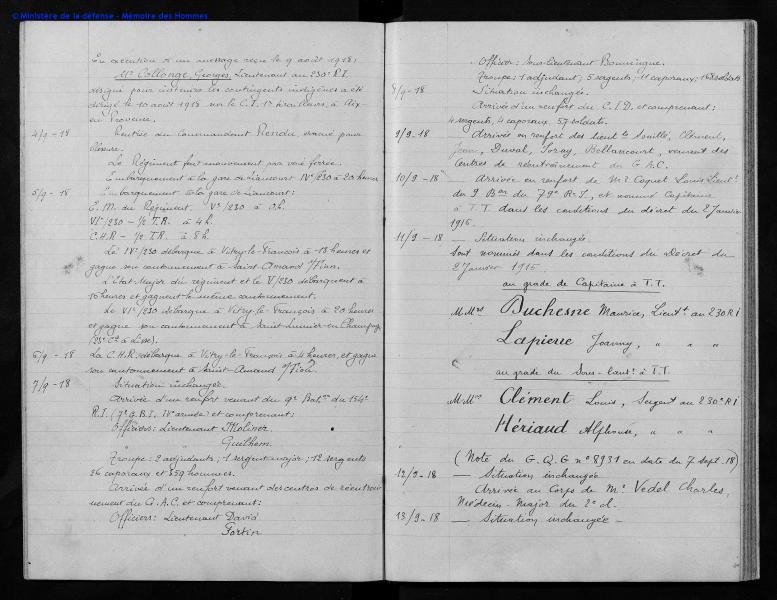 © Ministère de la défense - Mémoire des Hommes
En exécution d'un message reçu le 9 août 1918,
Mr Collonge, Georges, Lieutenant au 230e R.I.
désigné pour instruire les contingents indigènes a été
dirigé le 10 août 1918 sur le C.I. tirailleurs, à Aix-
en Provence.
4/9-18 Rentrée du Commandant Rendu, évacué pour
blessure.
Le Régiment fait mouvement par voie ferrée.
Embarquement à la gare de Liancourt IVe/230 à 20 heures
5/9-18 Embarquement à la gare de Liancourt:
E.M. du Régiment. Ve/230 à 0h.
VIe/230 - 1/2 T.R. à 4h.
C.H.R - 1/2 T.R. à 8h.
Le IVe/230 débarque à Vitry-le-François à 18 heures et
gagne son cantonnement à Saint-Amand s/Fion.
L'Etat-Major du régiment et le Ve/230 débarquent à
heures et gagnent le même cantonnement.
Le VIe/230 débarque à Vitry-le-François à 20 heures
et gagne son cantonnement à Saint-Lumier-en-Champagne
(23e Cie à Lisse).
6/9-18 La C.H.R. débarque à Vitry-le-François à 4 heures, et gagne
son cantonnement à Saint-Amand s/Fion.
7/9-18 Situation inchangée.
Arrivée d'un renfort venant du 9e Baton du 154e
R.I. (7e G.B.I. IVe armée) et comprenant:
Officiers: Lieutenant Moliner
Guilhem.
Troupe: 2 adjudants; 1 sergent-major; 12 sergents
26 caporaux et 359 hommes.
Arrivée d'un renfort venant des centres de réentraî-
nement du G.A.C. et comprenant:
Officiers: Lieutenant David
Fortin
Officier: Sous-Lieutenant
Troupe: 1 adjudant; 5 sergents; 11 caporaux; 168 soldats
8/9-18 Situation inchangée.
Arrivée d'un renfort du C.I.D. et comprenant:
4 sergents, 4 caporaux, 57 soldats.
9/9-18 Arrivée en renfort des lieuts Clément,
Duval, Bellancourt, venant des
centres de réentraînement du G.A.C.
10/9-18 Arrivée en renfort de Mr Coquet Louis Lieut.
du 9 Bon du 79e R.I., et nommé Capitaine
à T.T. dans les conditions du décret du 2 Janvier
1915.
11/9-18 - Situation inchangée.
Sont nommés dans les conditions du Décret du
2 Janvier 1915.
au grade de Capitaine à T.T.
M.Mrs Duchesne Maurice, Lieutt au 230 R I
Lapierre Joanny, " " "
au grade du Sous-lieut. à T.T.
M.Mrs Clément Louis, Sergent au 230e R I
Hériaud Alphonse, " " "
(Note du G.Q.G n° 8931 en date du 7 sept. 18)
12/9-18 - Situation inchangée
Arrivée au Corps de Mr Vedel Charles,
Médecin-Major du 2e cl.
13/9-18 - Situation inchangée -